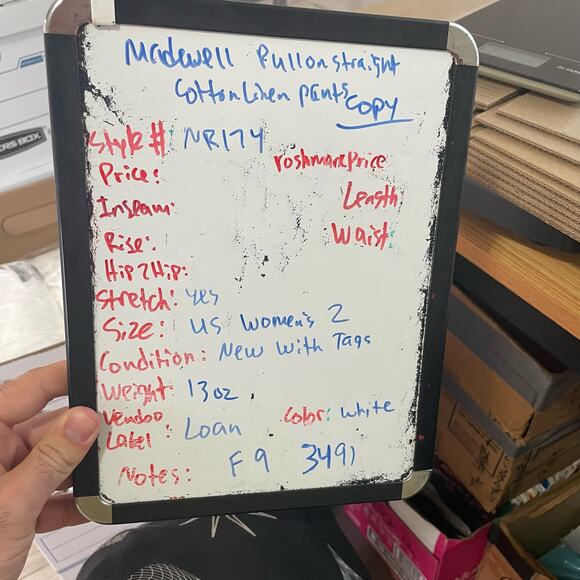 Madewell Pullon straight
Cotton Linen pants Copy
Style # NR174
Price: roshmare Price
Inseam: Length:
Rise: Waist:
Hip 2 Hip:
Stretch: yes
Size: US Women's 2
Condition: New With Tags
Weight 13 oz
Vendoo Label: Loan Color: white
Notes: F9 3491